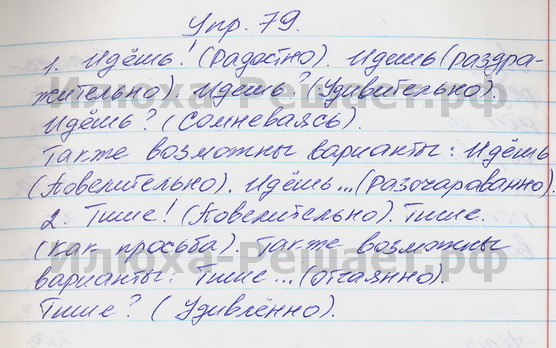 Упр. 79.
1. Идёшь! (Радостно). Идешь (раздра-
жительно). Идешь? (Удивительно).
Идёшь? (Сомневаясь).
Также возможны варианты: Идёшь
(Повелительно). Идёшь... (Разочарованно).
2. Тише! (Повелительно). Тише.
(как просьба). Также возможны
варианты: Тише... (отчаянно).
Тише? (Удивлённо).
Илюха-Решает.рф
Илюха-Решает.рф